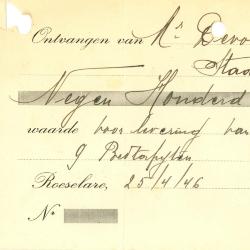 Ontvangen van Mr Devo
Stad
Negen Honderd
waarde voor levering van
9 Bedtapijten
Roeselare, 25/4/46
No